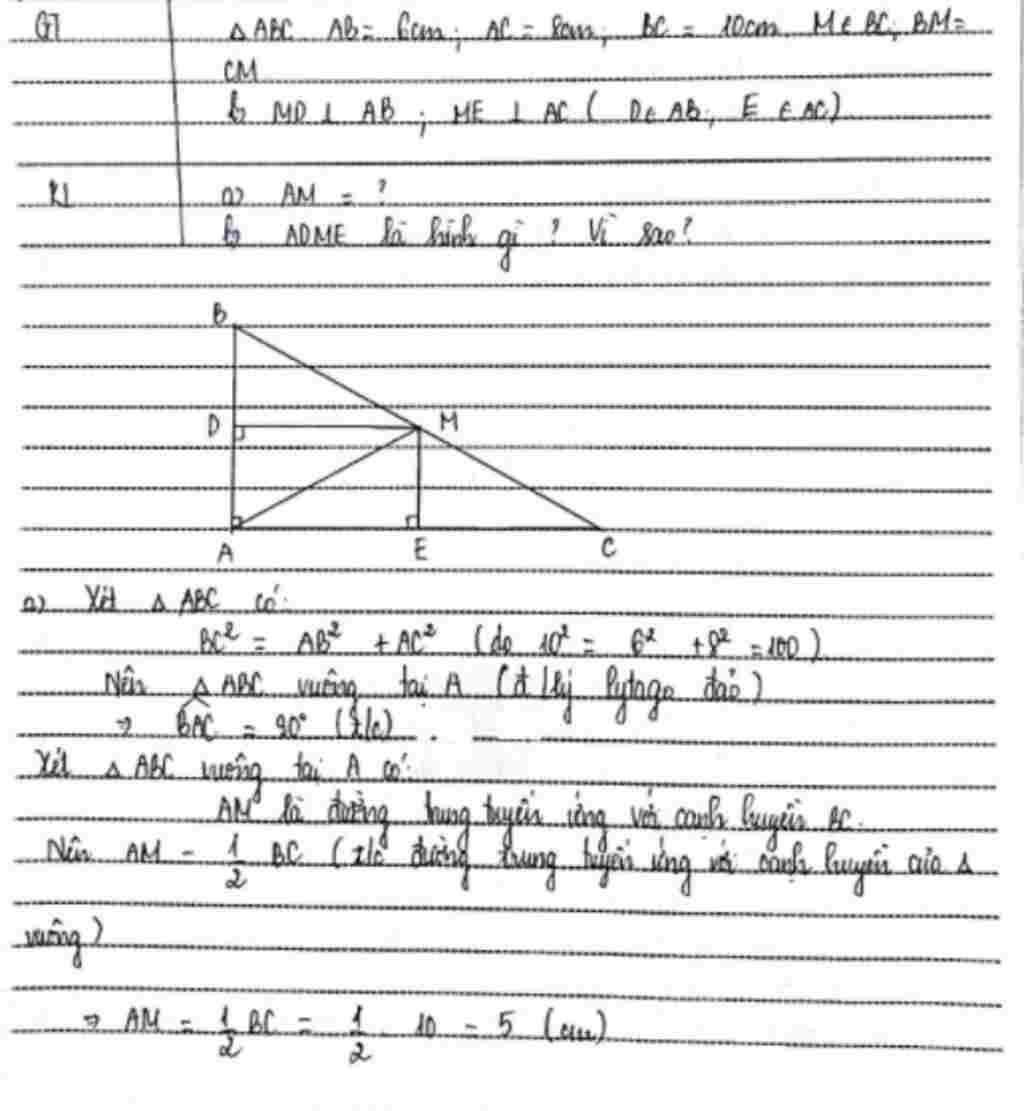 GT △ ABC AB = 6cm; AC = 8cm; BC = 10cm. M ∈ BC; BM =
CM
b, MD ⊥ AB ; ME ⊥ AC ( D ∈ AB; E ∈ AC)
KL a) AM = ?
b, ADME là hình gì ? Vì sao?
B
D M
A E C
a) Xét △ ABC có:
BC² = AB² + AC² (do 10² = 6² + 8² = 100)
Nên △ ABC vuông tại A (đ/lý Pytago đảo)
⇒ BAC = 90° (t/c)
Xét △ ABC vuông tại A có:
AM là đường trung tuyến ứng với cạnh huyền BC.
Nên AM = 1/2 BC (t/c đường trung tuyến ứng với cạnh huyền của △
vuông)
⇒ AM = 1/2 BC = 1/2 . 10 = 5 (cm)